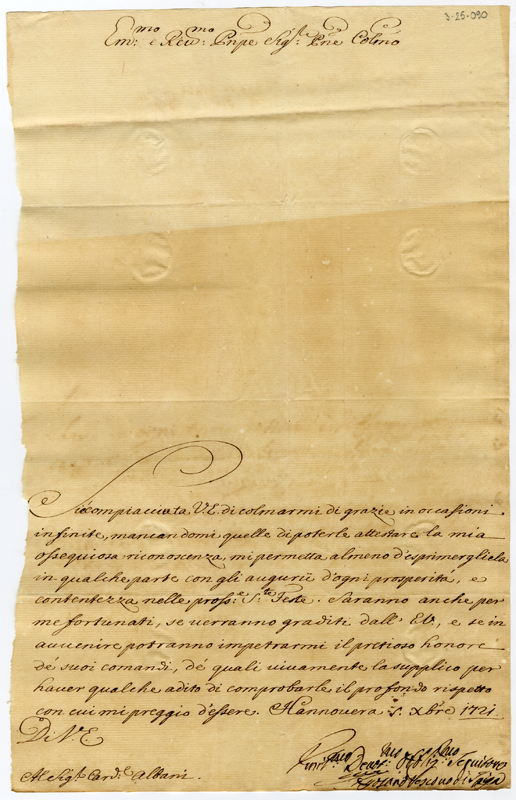 3-25-090
Em:mo e Rev:mo Pnpe Sig:r Pne Colmo
Si è compiacciuta V.E. di colmarmi di grazie in occasioni
infinite, mancandomi quelle di poterle attestare la mia
ossequiosa riconoscenza, mi permetta almeno d'esprimergliela
in qualche parte con gli augurii d'ogni prosperità, e
contentezza nelle pross:e S:te Feste. Saranno anche per
me fortunati, se verranno graditi dall' E.V., e se in
avvenire potranno impetrarmi il pretioso honore
de' suoi comandi, de' quali vivamente la supplico per
haver qualche adito di comprobarle il profondo rispetto
con cui mi preggio d'essere. Hannovera Xbre 1721
Di V.E.
Devot:mo
Al Sig:r Card:e Albani
Vescovo di Spiga